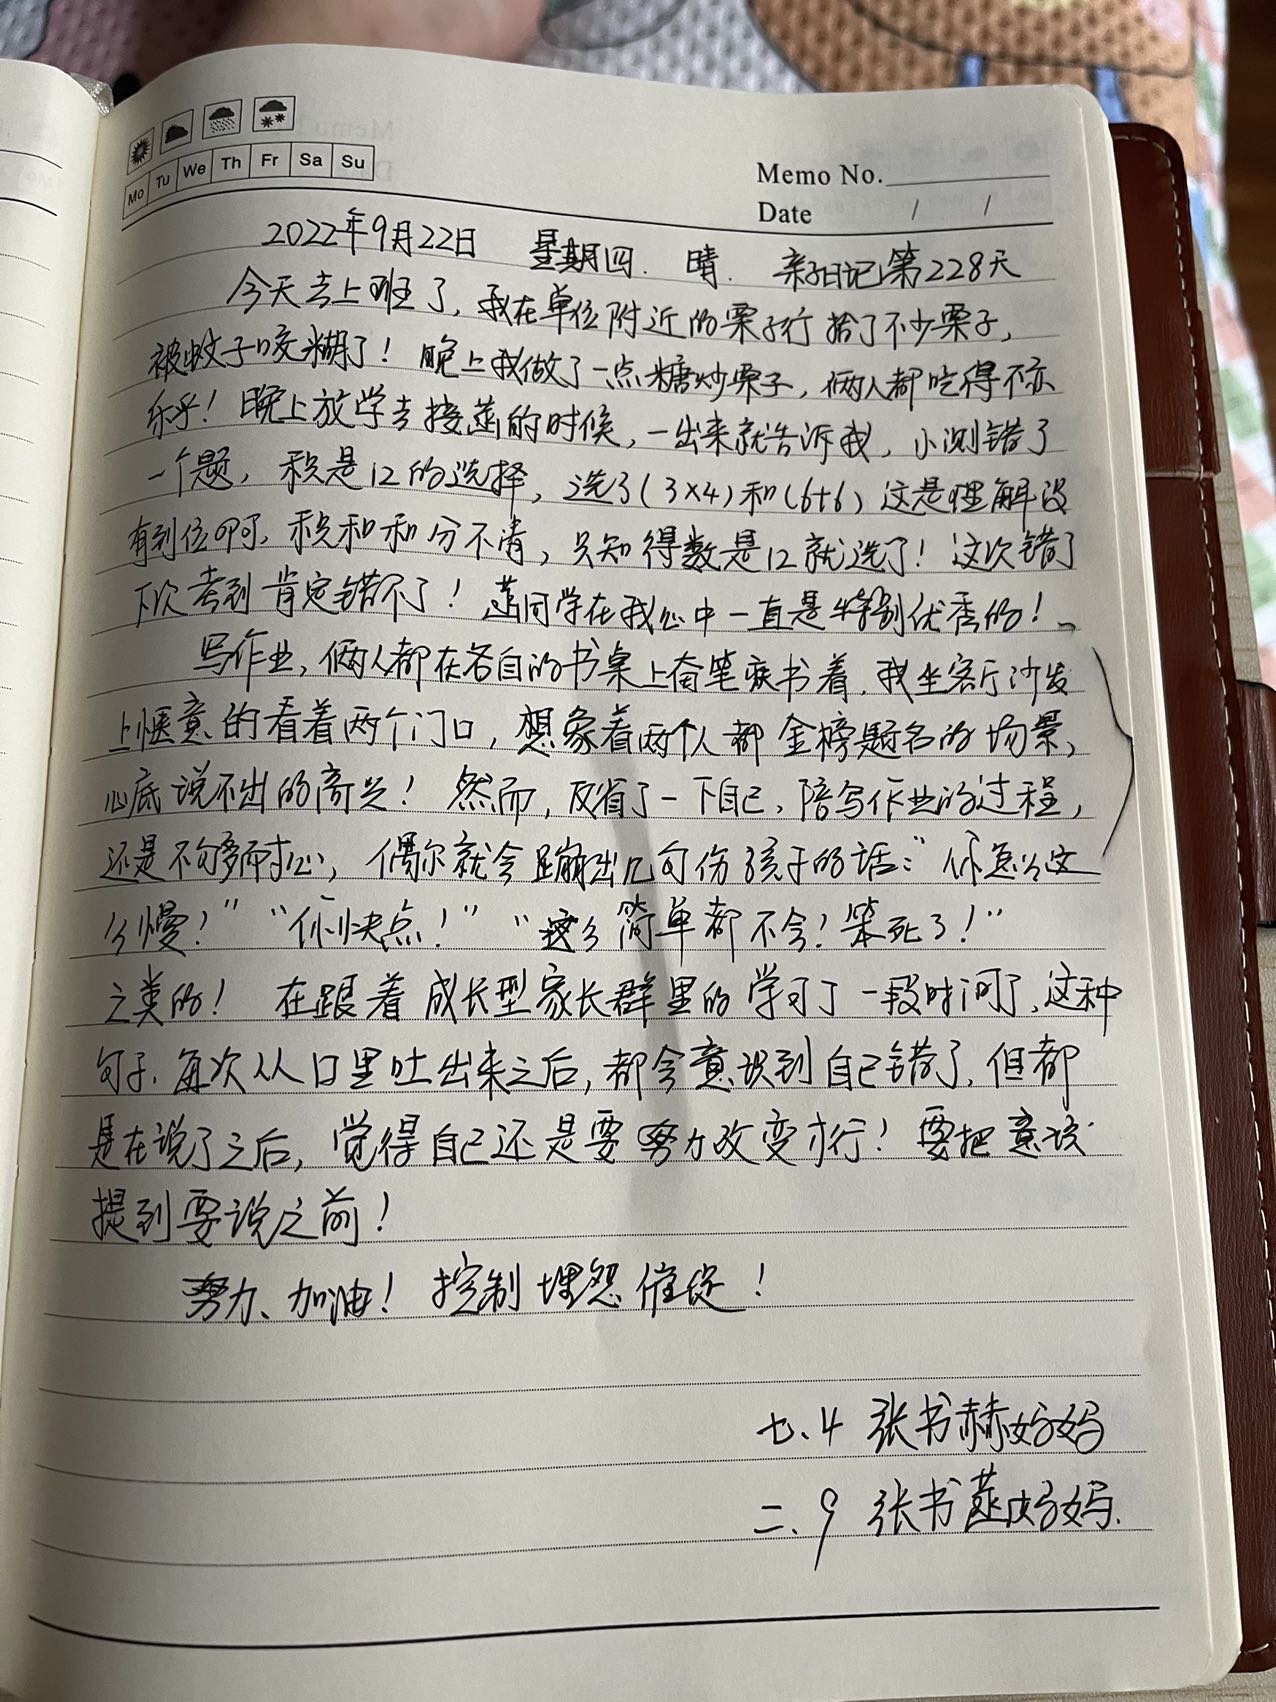 Mo Tu We Th Fr Sa Su
Memo No.
Date / /
2022年9月22日 星期四. 晴. 亲子日记第228天
今天去上班了,我在单位附近的栗子行拾了不少栗子,
被蚊子咬糊了!晚上我做了一点糖炒栗子,俩人都吃得不亦
乐乎!晚上放学去接菡的时候,一出来就告诉我,小测错了
一个题,积是12的选择,选了(3×4)和(6+6)这是理解没
有到位啊,积和和分不清,只知得数是12就选了!这次错了
下次考到肯定错不了!菡同学在我心中一直是特别优秀的!
写作业,俩人都在各自的书桌上奋笔疾书着,我坐客厅沙发
上惬意的看着两个门口,想象着两个人都金榜题名的场景,
心底说不出的高兴!然而,反省了一下自己,陪写作业的过程,
还是不够耐心,偶尔就会蹦出几句伤孩子的话:“你怎么这
么慢!”“你快点!”“这么简单都不会!笨死了!”
之类的!在跟着成长型家长群里的学习了一段时间了,这种
句子,每次从口里吐出来之后,都会意识到自己错了,但都
是在说了之后,觉得自己还是要努力改变才行!要把意识
提到要说之前!
努力、加油!控制埋怨催促!
七.4 张书赫妈妈
二.9 张书菡妈妈.